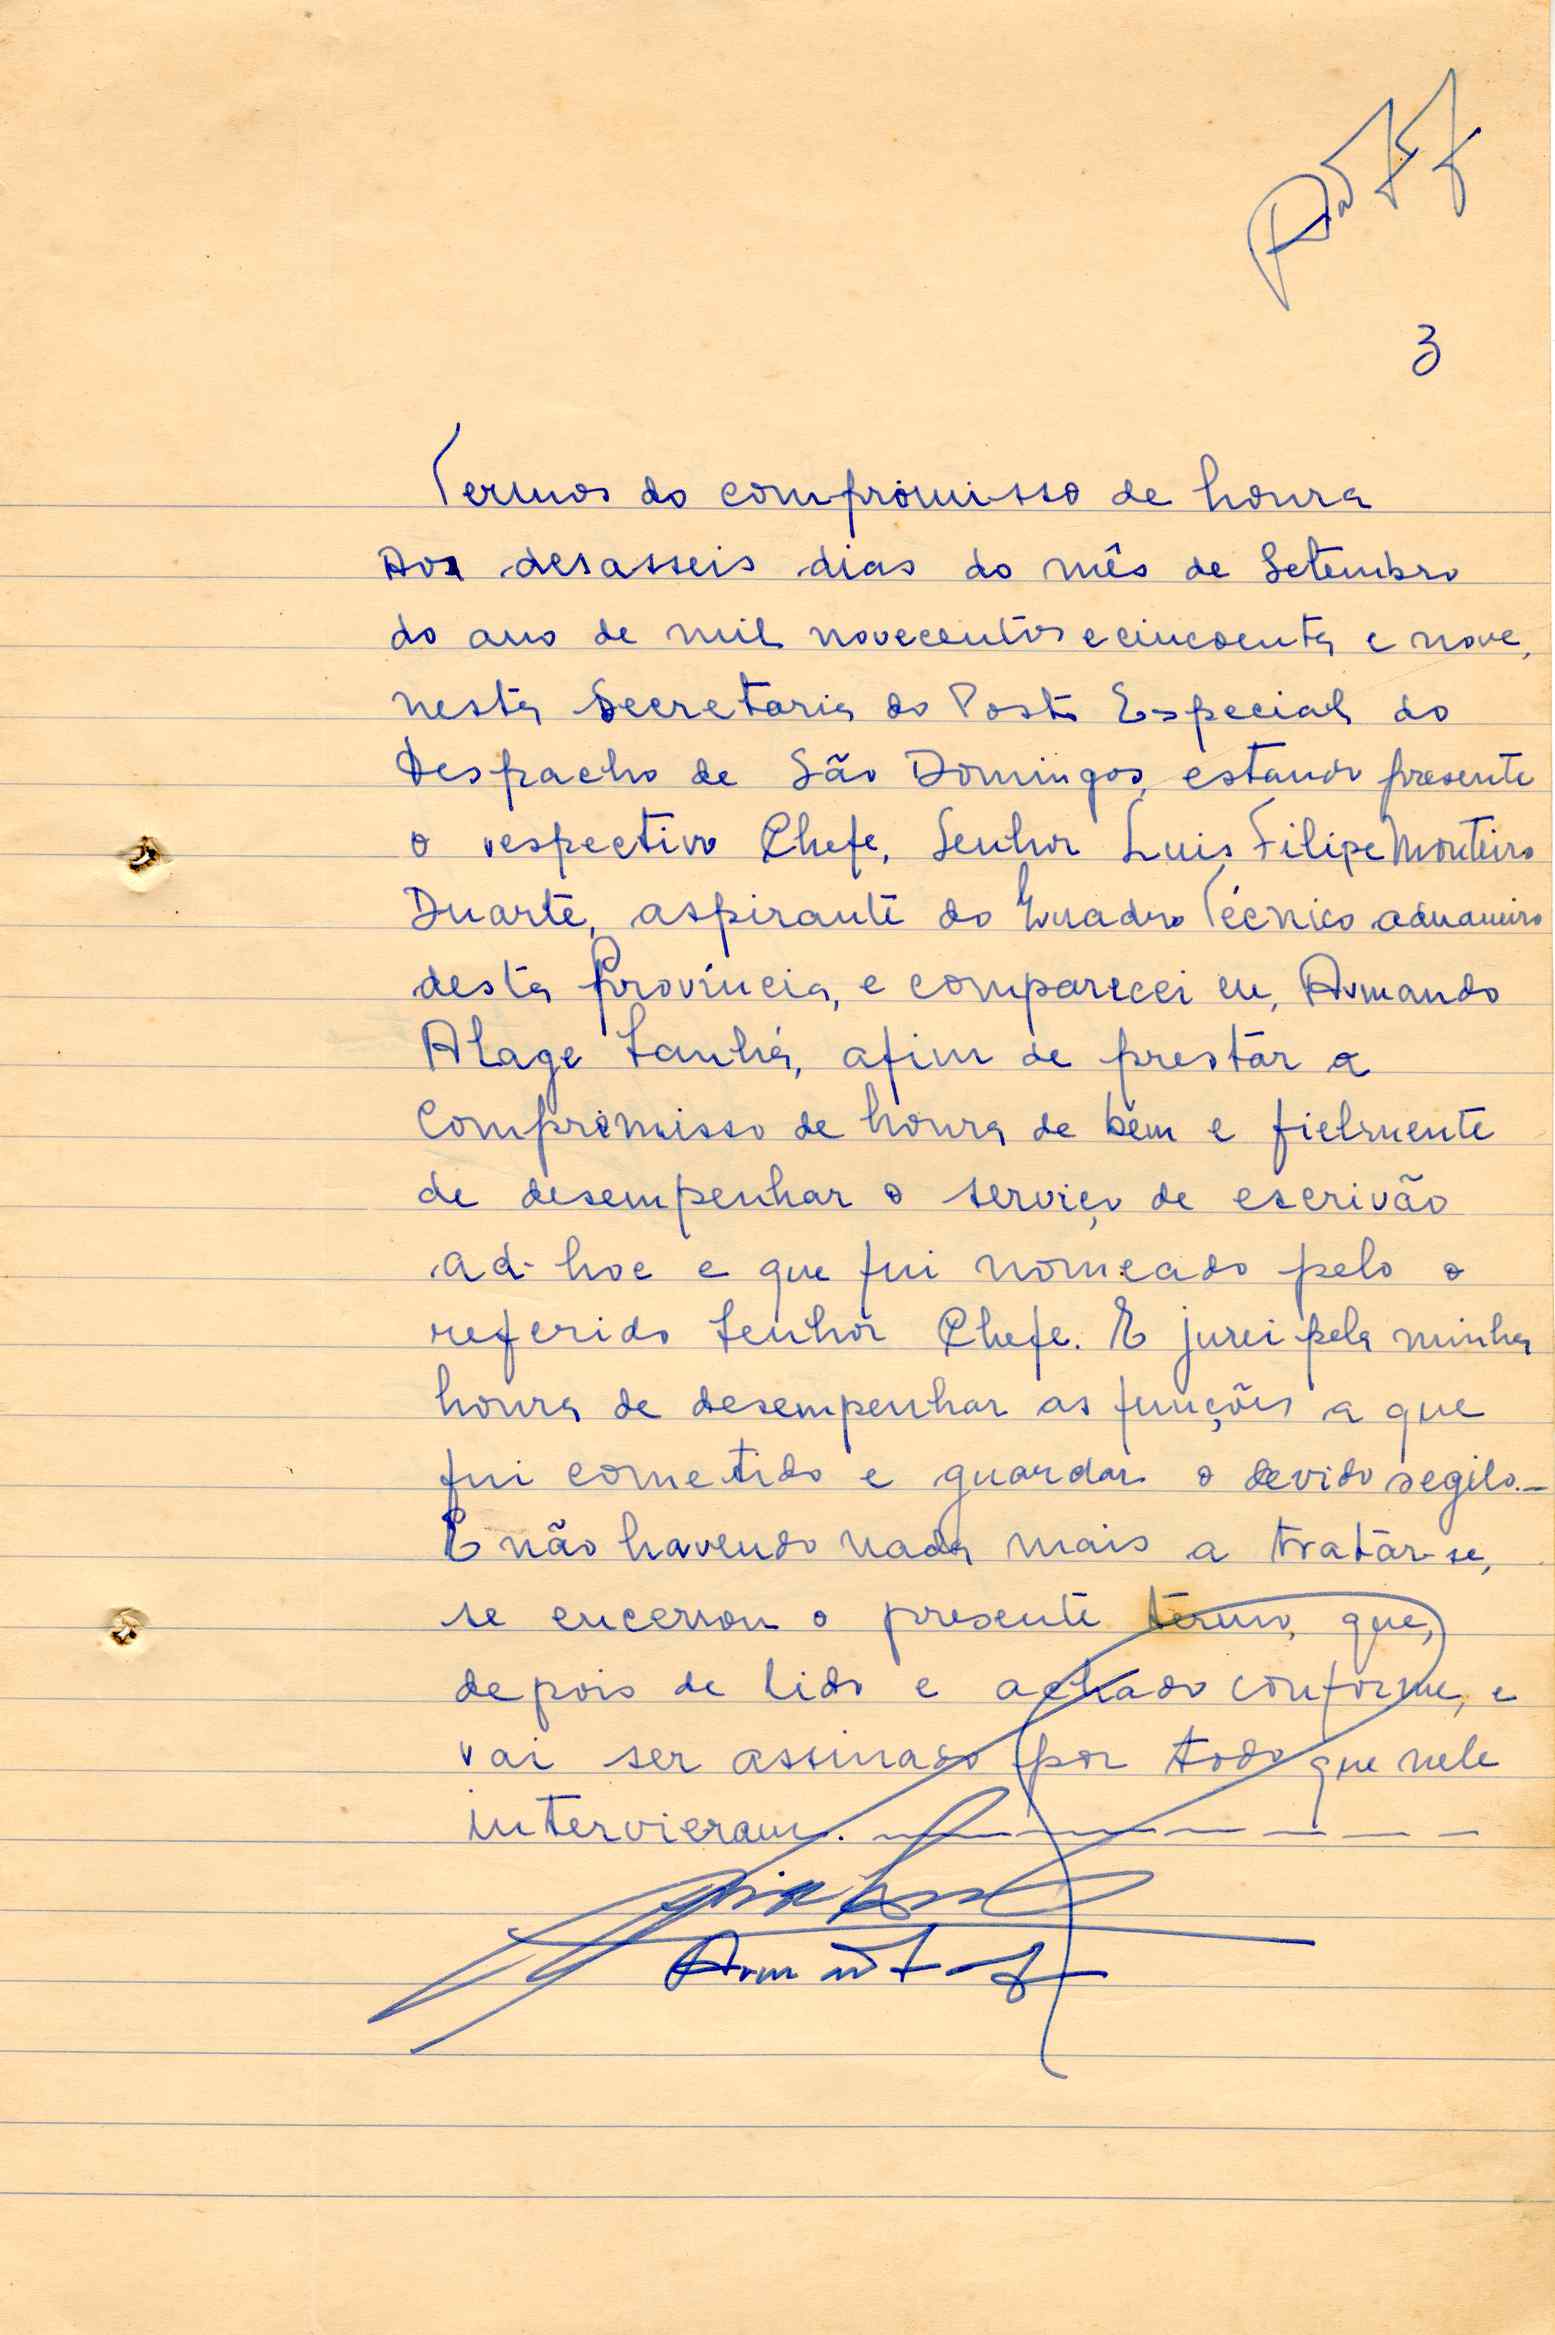 3
Termos do compromisso de honra
Aos desasseis dias do mês de Setembro
do ano de mil novecentos e cincoenta e nove,
nesta Secretaria do Posto Especial do
Despacho de São Domingos, estando presente
o respectivo Chefe, Senhor Luis Filipe Monteiro
Duarte, aspirante do Quadro Técnico aduaneiro
desta Província, e comparecei eu, Armando
Alage Sanhá, afim de prestar a
compromisso de honra de bem e fielmente
de desempenhar o serviço de escrivão
ad-hoc e que fui nomeado pelo o
referido Senhor Chefe. E jurei pela minha
honra de desempenhar as funções a que
fui cometido e guardar o devido segilo.—
E não havendo nada mais a tratar-se,
se encerrou o presente termo, que,
depois de lido e achado conforme, e
vai ser assinado por todo que nele
intervieram. — — — — — — — —